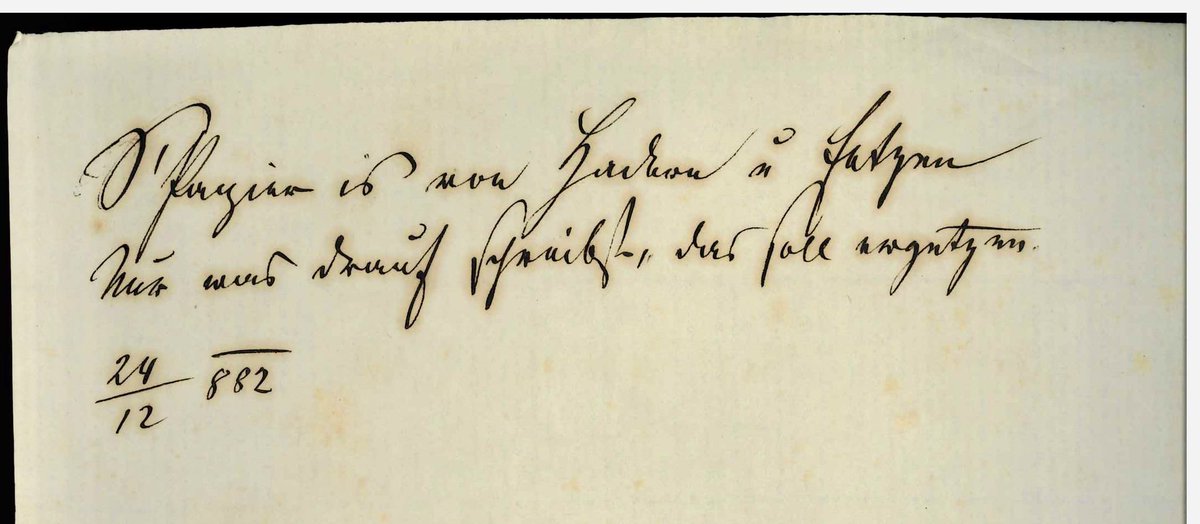 S'Papier is von Hadern u Fetzen
Nur was drauf schreibst, das soll ergetzen.
24/12 882